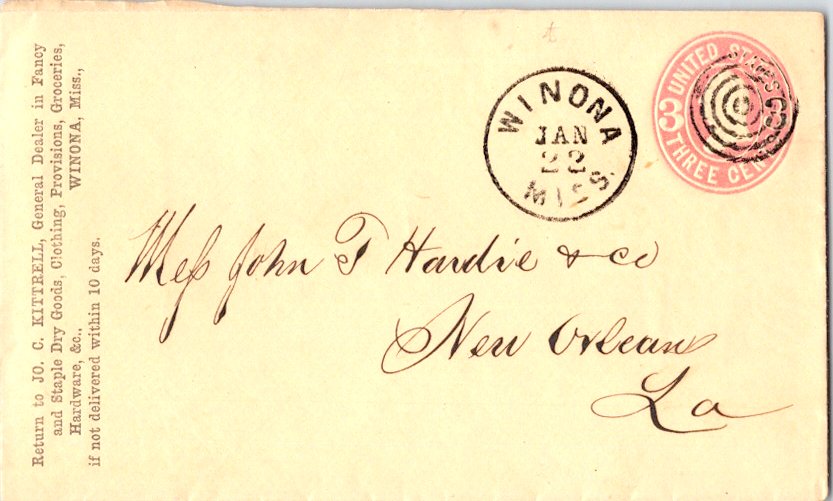 Return to JO. C. KITTRELL, General Dealer in Fancy
and Staple Dry Goods, Clothing, Provisions, Groceries,
Hardware, &c., WINONA, Miss.,
if not delivered within 10 days.
WINONA
JAN
22
MISS.
UNITED STATES
3 3
THREE CEN
Mess John T Hardie & co
New Orleans
La